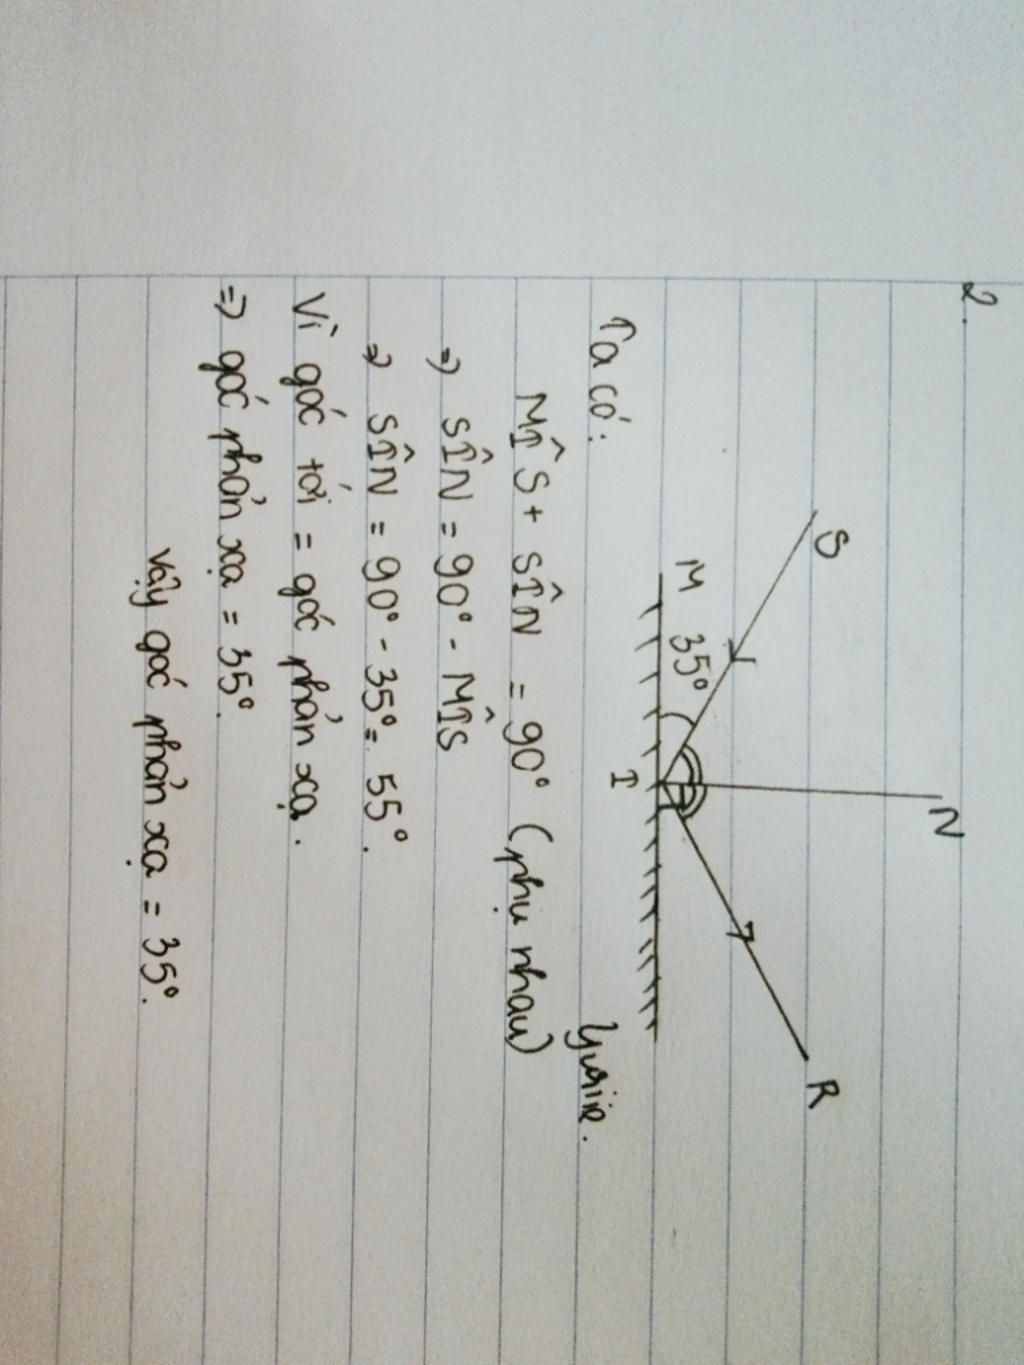 2.
S
N
R
M
35°
I
Yuriie.
Ta có:
MÎS + SÎN = 90° (phụ nhau)
=> SÎN = 90° - MÎS
=> SÎN = 90° - 35° = 55°.
Vì góc tới = góc phản xạ.
=> góc phản xạ = 35°.
Vậy góc phản xạ = 35°.